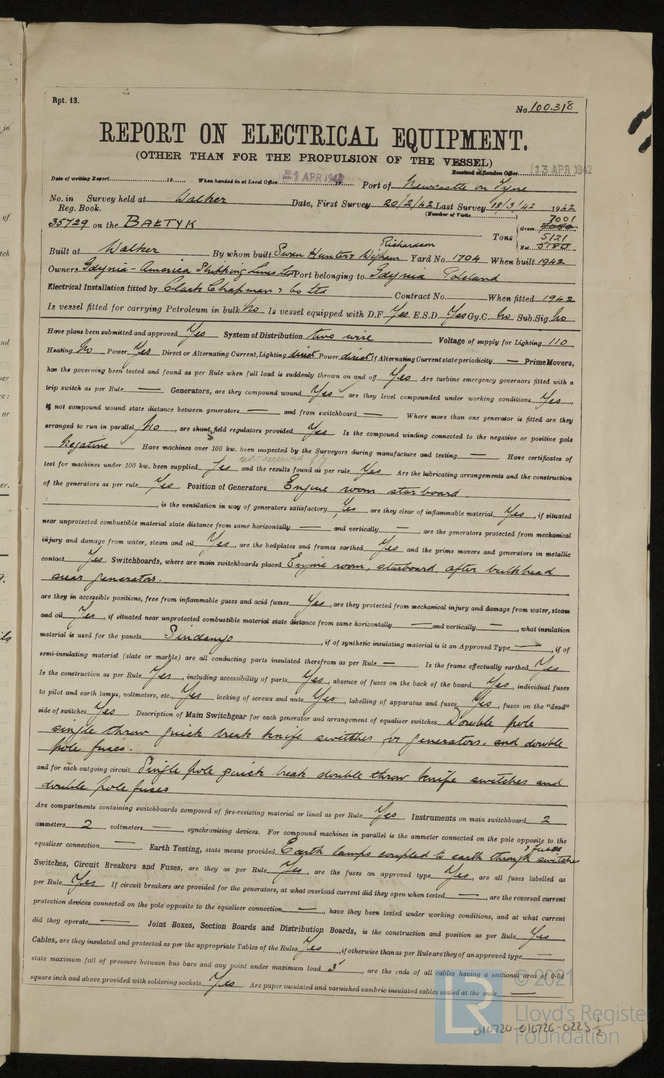 Rpt. 13.
No. 100.318
REPORT ON ELECTRICAL EQUIPMENT.
(OTHER THAN FOR THE PROPULSION OF THE VESSEL)
Received at London Office 13 APR 1942
Date of writing Report 19 When handed in at Local Office APR 1942 Port of Newcastle on Tyne
No. in Survey held at Walker Date, First Survey 20/2/42 Last Survey 18/3/42 1942
Reg. Book. (Number of Visits
35729 on the BAŁTYK Tons Gross 7001 Net 5121
Built at Walker By whom built Swan Hunter & Wigham Richardson Yard No. 1704 When built 1942
Owners Gdynia-America Shipping Lines Ltd Port belonging to Gdynia Poland
Electrical Installation fitted by Clark Chapman & Co Ltd Contract No. When fitted 1942
Is vessel fitted for carrying Petroleum in bulk No Is vessel equipped with D.F. Yes E.S.D. Yes Gy.C. No Sub.Sig. No
Have plans been submitted and approved Yes System of Distribution two wire Voltage of supply for Lighting 110
Heating No Power Yes Direct or Alternating Current, Lighting direct Power direct If Alternating Current state periodicity — Prime Movers,
has the governing been tested and found as per Rule when full load is suddenly thrown on and off Yes Are turbine emergency governors fitted with a
trip switch as per Rule — Generators, are they compound wound Yes, are they level compounded under working conditions Yes,
if not compound wound state distance between generators — and from switchboard — Where more than one generator is fitted are they
arranged to run in parallel No, are shunt field regulators provided Yes Is the compound winding connected to the negative or positive pole
Negative Have machines over 100 kw. been inspected by the Surveyors during manufacture and testing — Have certificates of
test for machines under 100 kw. been supplied Yes and the results found as per rule Yes Are the lubricating arrangements and the construction
of the generators as per rule Yes Position of Generators Engine room starboard.
, is the ventilation in way of generators satisfactory Yes are they clear of inflammable material Yes, if situated
near unprotected combustible material state distance from same horizontally — and vertically —, are the generators protected from mechanical
injury and damage from water, steam and oil Yes, are the bedplates and frames earthed Yes and the prime movers and generators in metallic
contact Yes Switchboards, where are main switchboards placed Engine room, starboard, after bulkhead
near generators.
are they in accessible positions, free from inflammable gases and acid fumes Yes, are they protected from mechanical injury and damage from water, steam
and oil Yes, if situated near unprotected combustible material state distance from same horizontally — and vertically —, what insulation
material is used for the panels Sindanyo, if of synthetic insulating material is it an Approved Type —, if of
semi-insulating material (slate or marble) are all conducting parts insulated therefrom as per Rule — Is the frame effectually earthed Yes
Is the construction as per Rule Yes, including accessibility of parts Yes, absence of fuses on the back of the board Yes, individual fuses
to pilot and earth lamps, voltmeters, etc. Yes locking of screws and nuts Yes, labelling of apparatus and fuses Yes, fuses on the "dead"
side of switches Yes Description of Main Switchgear for each generator and arrangement of equaliser switches Double pole
single throw quick break knife switches for generators. and double
pole fuses.
and for each outgoing circuit Single pole quick break double throw knife switches and
double pole fuses
Are compartments containing switchboards composed of fire-resisting material or lined as per Rule Yes Instruments on main switchboard 2
ammeters 2 voltmeters — synchronising devices. For compound machines in parallel is the ammeter connected on the pole opposite to the
equaliser connection — Earth Testing, state means provided Earth lamps coupled to earth through switches & fuses
Switches, Circuit Breakers and Fuses, are they as per Rule Yes, are the fuses an approved type Yes, are all fuses labelled as
per Rule Yes If circuit breakers are provided for the generators, at what overload current did they open when tested —, are the reversed current
protection devices connected on the pole opposite to the equaliser connection —, have they been tested under working conditions, and at what current
did they operate — Joint Boxes, Section Boards and Distribution Boards, is the construction and position as per Rule Yes
Cables, are they insulated and protected as per the appropriate Tables of the Rules Yes, if otherwise than as per Rule are they of an approved type —
state maximum fall of pressure between bus bars and any point under maximum load 3, are the ends of all cables having a sectional area of 0·04
square inch and above provided with soldering sockets Yes Are paper insulated and varnished cambric insulated cables sealed at the ends —
© 2021
Lloyd's Register
Foundation
LR
010720-010726-0225 1/2